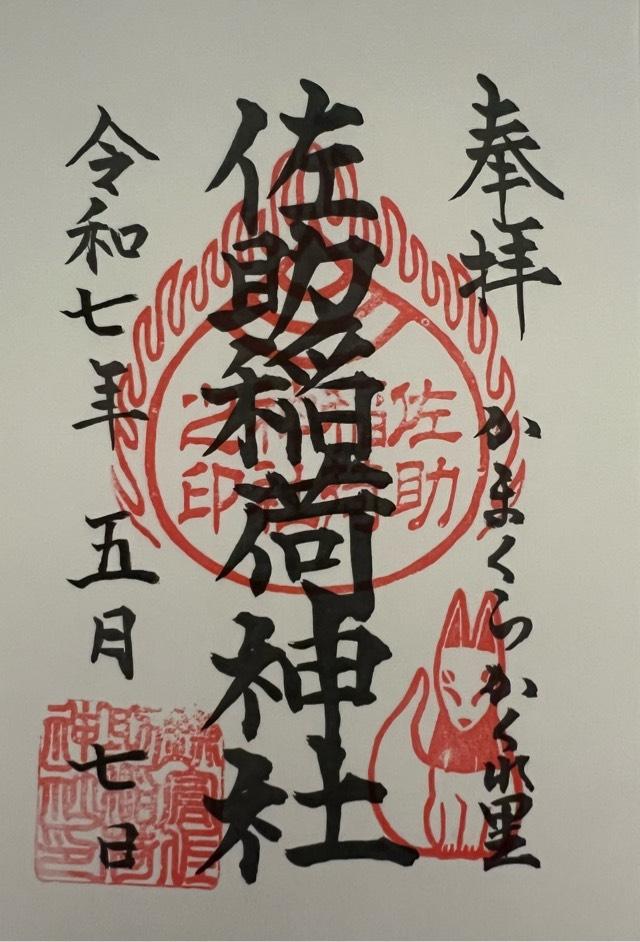 奉拝
かまくらかくれ里
佐助稲荷神社
令和七年 五月 七日
佐助
稲荷
神社
之印